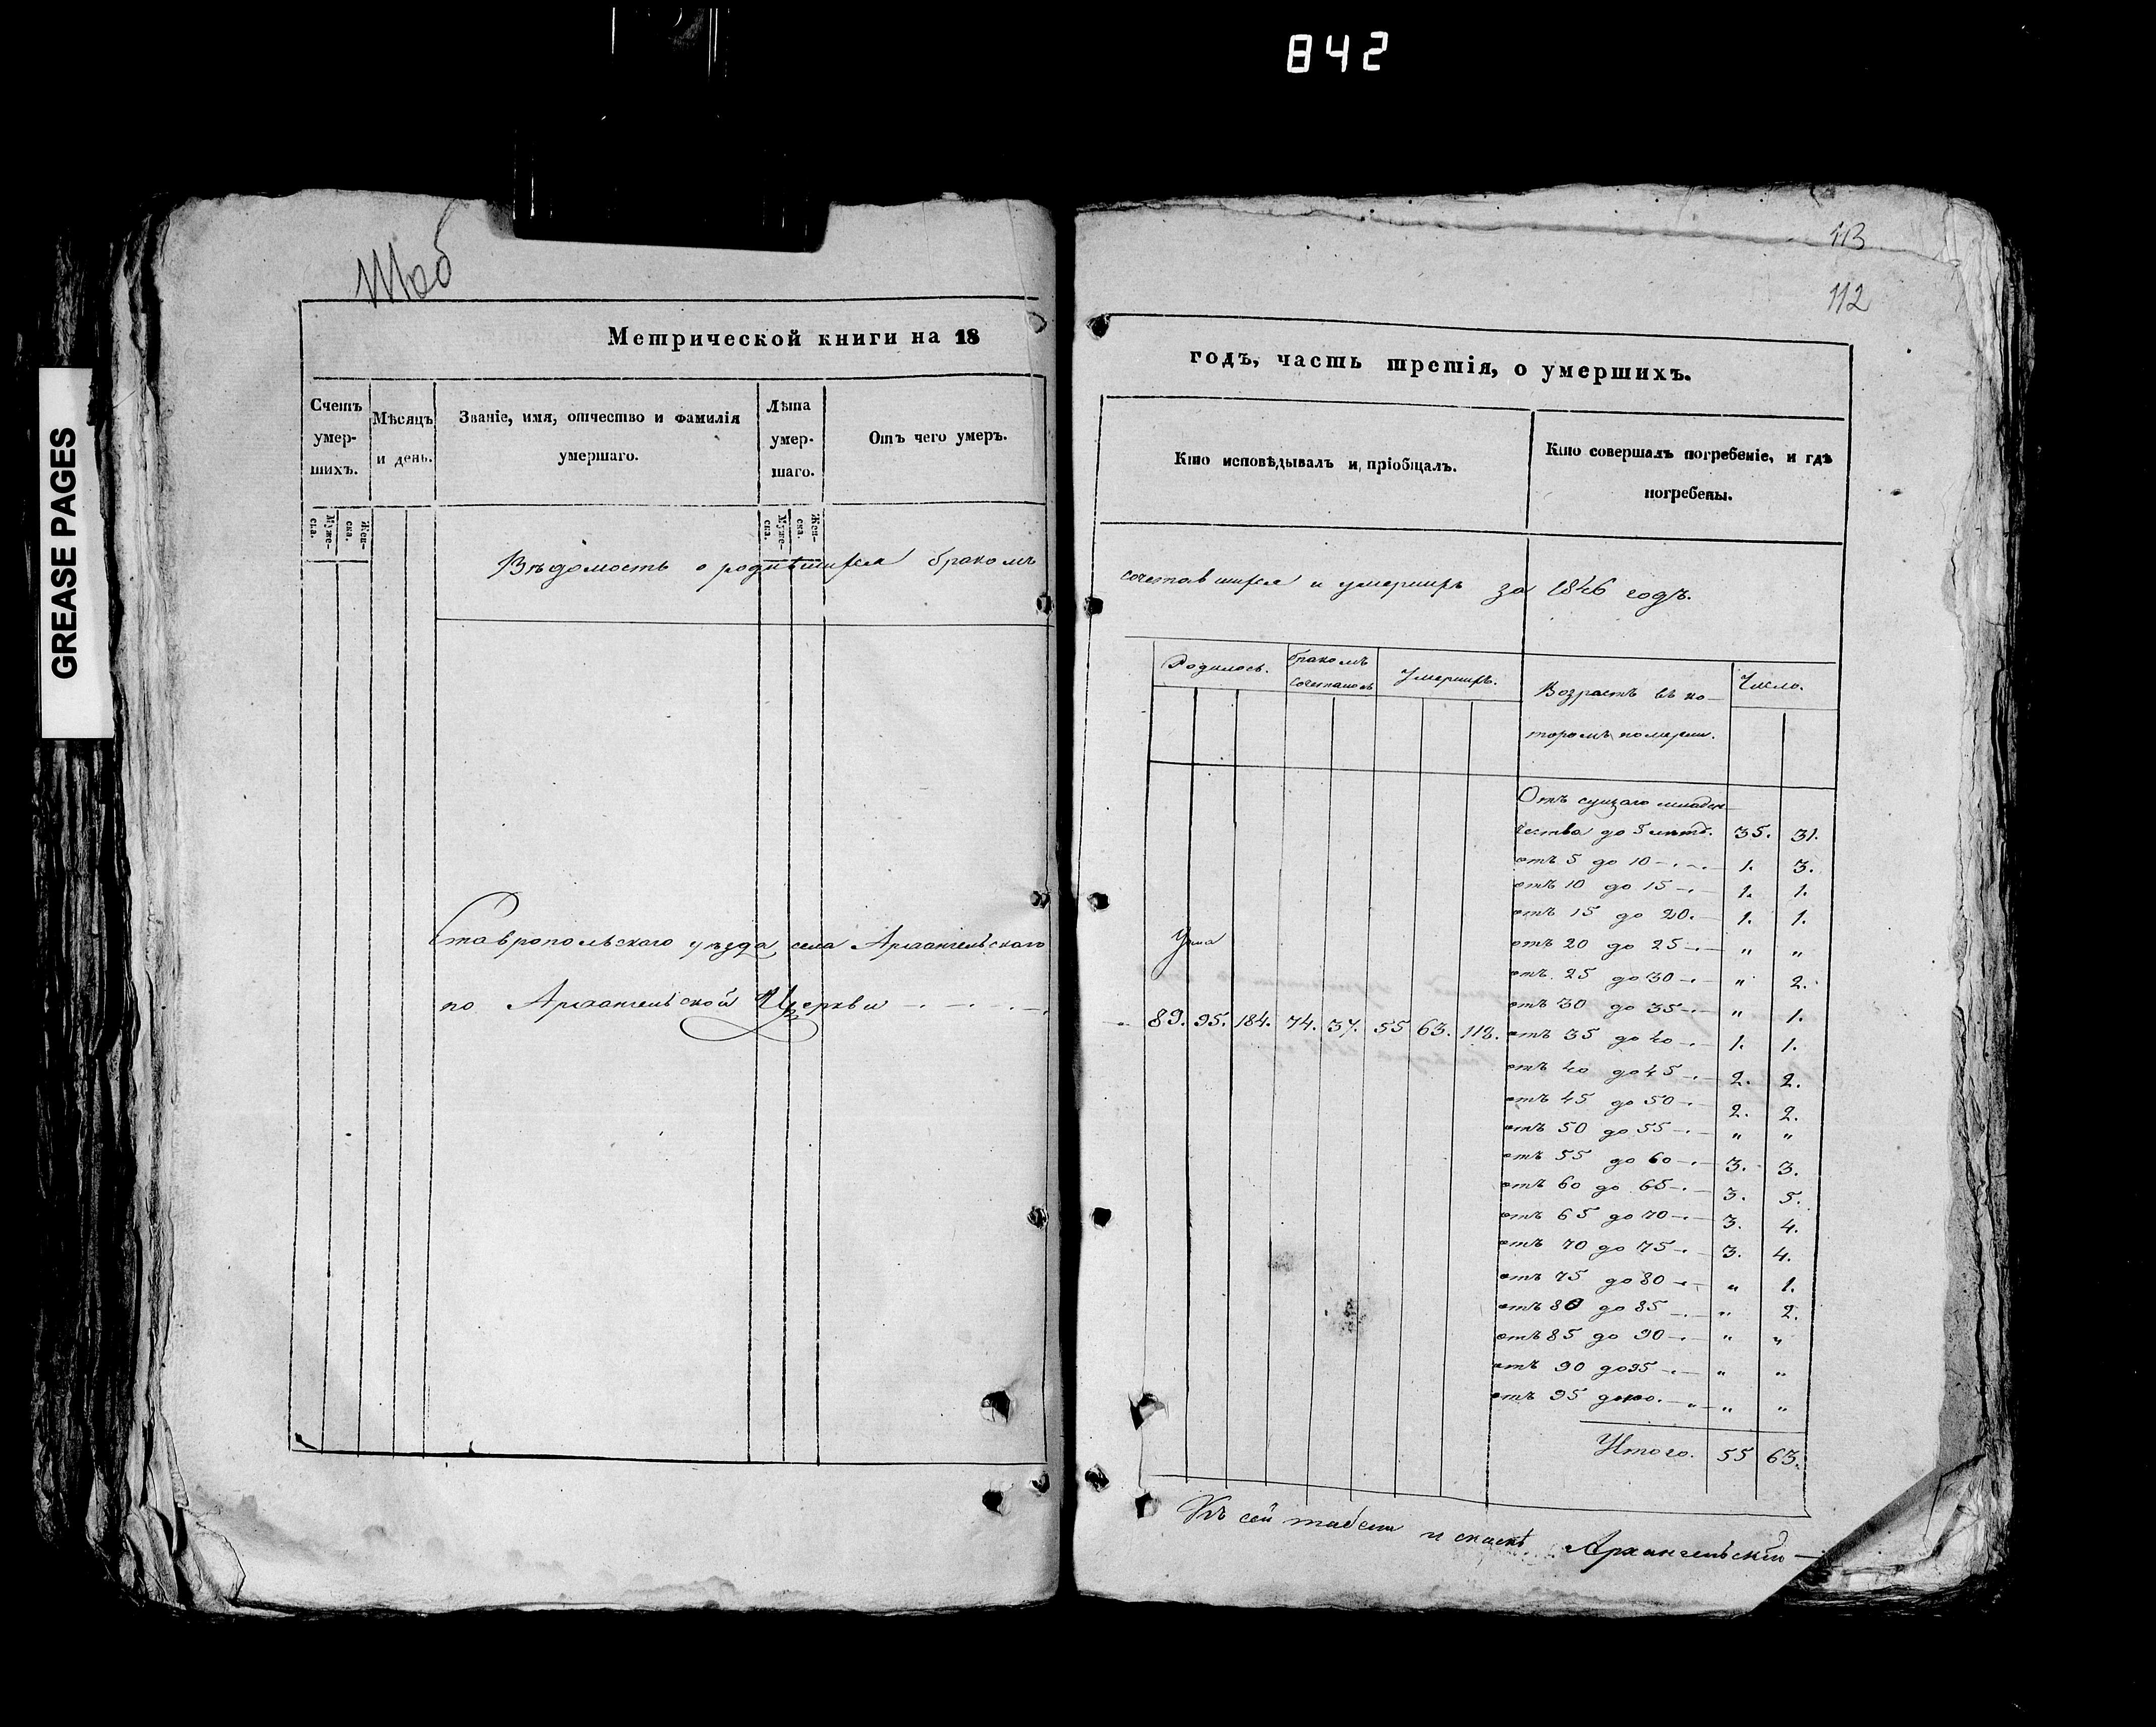 842
GREASE PAGES
113
112
Метрической книги на 18
годъ, часть третія, о умершихъ.
Счетъ умер- шихъ.
Мѣсяцъ и день.
Званіе, имя, отчество и фамилія умершаго.
Лѣта умер- шаго.
Отъ чего умеръ.
Кто исповѣдывалъ и пріобщалъ.
Кто совершалъ погребеніе, и гдѣ погребены.
Муже- ска.
Жен- ска.
Муже- ска.
Жен- ска.
Вѣдомость о родившихся бракомъ
сочетавшихся и умершихъ за 1846 годъ.
Родилось.
бракомъ сочеталось
Умершихъ.
Возрастъ въ ко-
торомъ померли.
Число.
Отъ сущаго младен-
чества до 5 лѣтъ. 35. 31.
отъ 5 до 10 1. 3.
отъ 10 до 15 1. 1.
отъ 15 до 20. 1. 1.
отъ 20 до 25 " "
отъ 25 до 30 " 2.
отъ 30 до 35 " 1.
отъ 35 до 40 1. 1.
отъ 40 до 45 2. 2.
отъ 45 до 50 2. 2.
отъ 50 до 55 " "
отъ 55 до 60 3. 3.
отъ 60 до 65 3. 5.
отъ 65 до 70 3. 4.
отъ 70 до 75 3. 4.
отъ 75 до 80 " 1.
отъ 80 до 85 " 2.
отъ 85 до 90 " "
отъ 90 до 95 " "
отъ 95 до 100. " "
Итого. 55 63.
Ставропольскаго уѣзда села Архангельскаго
по Архангельской Церкви
89. 95. 184. 74. 37. 55 63. 118.
Къ сей табели Архангельскій